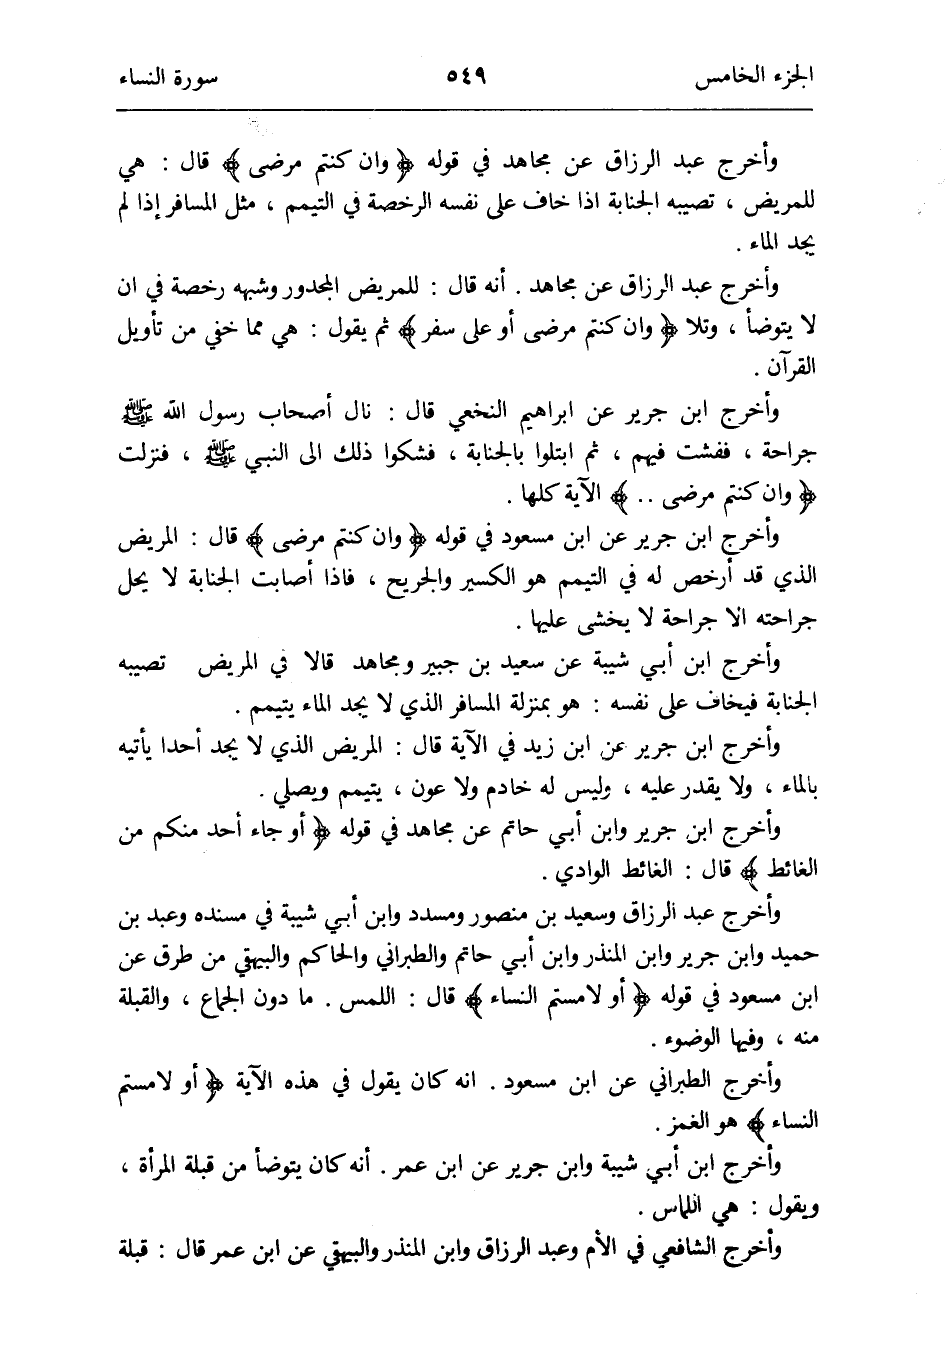 الجزء الخامس ٥٤٩ سورة النساء
وأخرج عبد الرزاق عن مجاهد في قوله ﴿ وان كنتم مرضى ﴾ قال : هي
للمريض ، تصيبه الجنابة اذا خاف على نفسه الرخصة في التيمم ، مثل المسافر إذا لم
يجد الماء .
وأخرج عبد الرزاق عن مجاهد . أنه قال : للمريض المجدور وشبهه رخصة في ان
لا يتوضأ ، وتلا ﴿ وان كنتم مرضى أو على سفر ﴾ ثم يقول : هي مما خفي من تأويل
القرآن .
وأخرج ابن جرير عن ابراهيم النخعي قال : نال أصحاب رسول الله ﷺ
جراحة ، ففشت فيهم ، ثم ابتلوا بالجنابة ، فشكوا ذلك الى النبي ﷺ ، فنزلت
﴿ وان كنتم مرضى .. ﴾ الآية كلها .
وأخرج ابن جرير عن ابن مسعود في قوله ﴿ وان كنتم مرضى ﴾ قال : المريض
الذي قد أرخص له في التيمم هو الكسير والجريح ، فاذا أصابت الجنابة لا يحل
جراحته الا جراحة لا يخشى عليها .
وأخرج ابن أبي شيبة عن سعيد بن جبير ومجاهد قالا في المريض تصيبه
الجنابة فيخاف على نفسه : هو بمنزلة المسافر الذي لا يجد الماء يتيمم .
وأخرج ابن جرير عن ابن زيد في الآية قال : المريض الذي لا يجد أحدا يأتيه
بالماء ، ولا يقدر عليه ، وليس له خادم ولا عون ، يتيمم ويصلي .
وأخرج ابن جرير وابن أبي حاتم عن مجاهد في قوله ﴿ أو جاء أحد منكم من
الغائط ﴾ قال : الغائط الوادي .
وأخرج عبد الرزاق وسعيد بن منصور ومسدد وابن أبي شيبة في مسنده وعبد بن
حميد وابن جرير وابن المنذر وابن أبي حاتم والطبراني والحاكم والبيهقي من طرق عن
ابن مسعود في قوله ﴿ أو لامستم النساء ﴾ قال : اللمس . ما دون الجماع ، والقبلة
منه ، وفيها الوضوء .
وأخرج الطبراني عن ابن مسعود . انه كان يقول في هذه الآية ﴿ أو لامستم
النساء ﴾ هو الغمز .
وأخرج ابن أبي شيبة وابن جرير عن ابن عمر . أنه كان يتوضأ من قبلة المرأة ،
ويقول : هي اللماس .
وأخرج الشافعي في الأم وعبد الرزاق وابن المنذر والبيهقي عن ابن عمر قال : قبلة